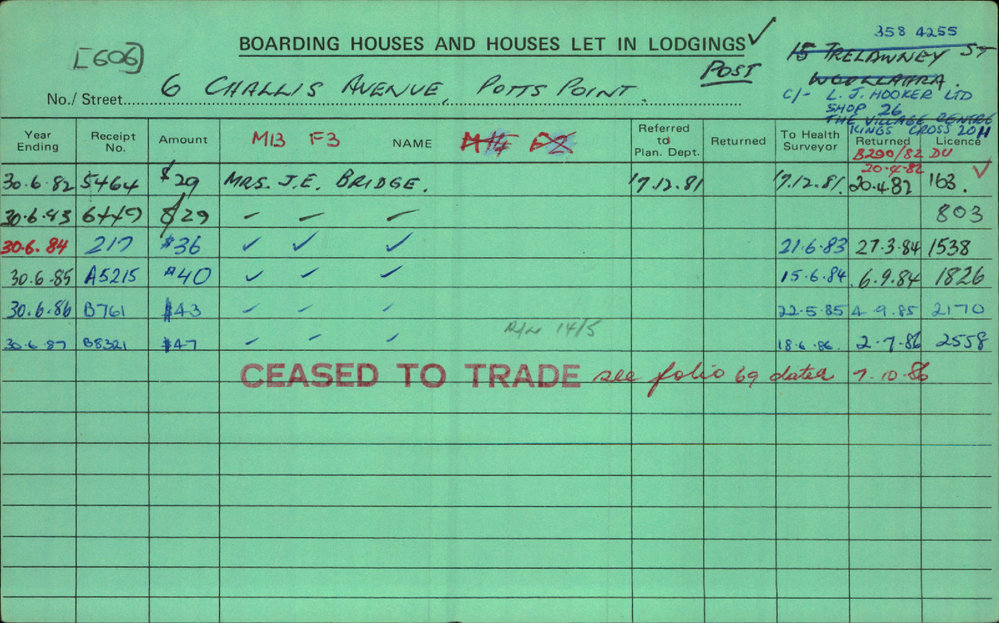 358 4255
[606]
BOARDING HOUSES AND HOUSES LET IN LODGINGS ✓
15 TRELAWNEY ST
WOOLLAHRA.
POST
C/- L. J. HOOKER LTD
SHOP 26
THE VILLAGE CENTRE
KINGS CROSS 2011
No./Street 6 CHALLIS AVENUE, POTTS POINT.
Year Ending Receipt No. Amount M13 F3 NAME M14 F2 Referred to Plan. Dept. Returned To Health Surveyor Returned Licence
B290/82 DU
20-4-82 ✓
30.6.82 5464 $29 MRS. J.E. BRIDGE. 17.12.81 17.12.81. 20.4.82 163.
30.6.83 6449 $29 — — — 803
30.6.84 217 $36 ✓ ✓ ✓ 21.6.83 27.3.84 1538
30.6.85 A5215 $40 ✓ ✓ ✓ 15.6.84 6.9.84 1826
30.6.86 B761 $43 ✓ ✓ ✓ 22.5.85 4.9.85 2170
14/5
30.6.87 B8321 $47 ✓ ✓ ✓ 18.6.86 2.7.86 2558
CEASED TO TRADE see folio 69 dated 7.10.86